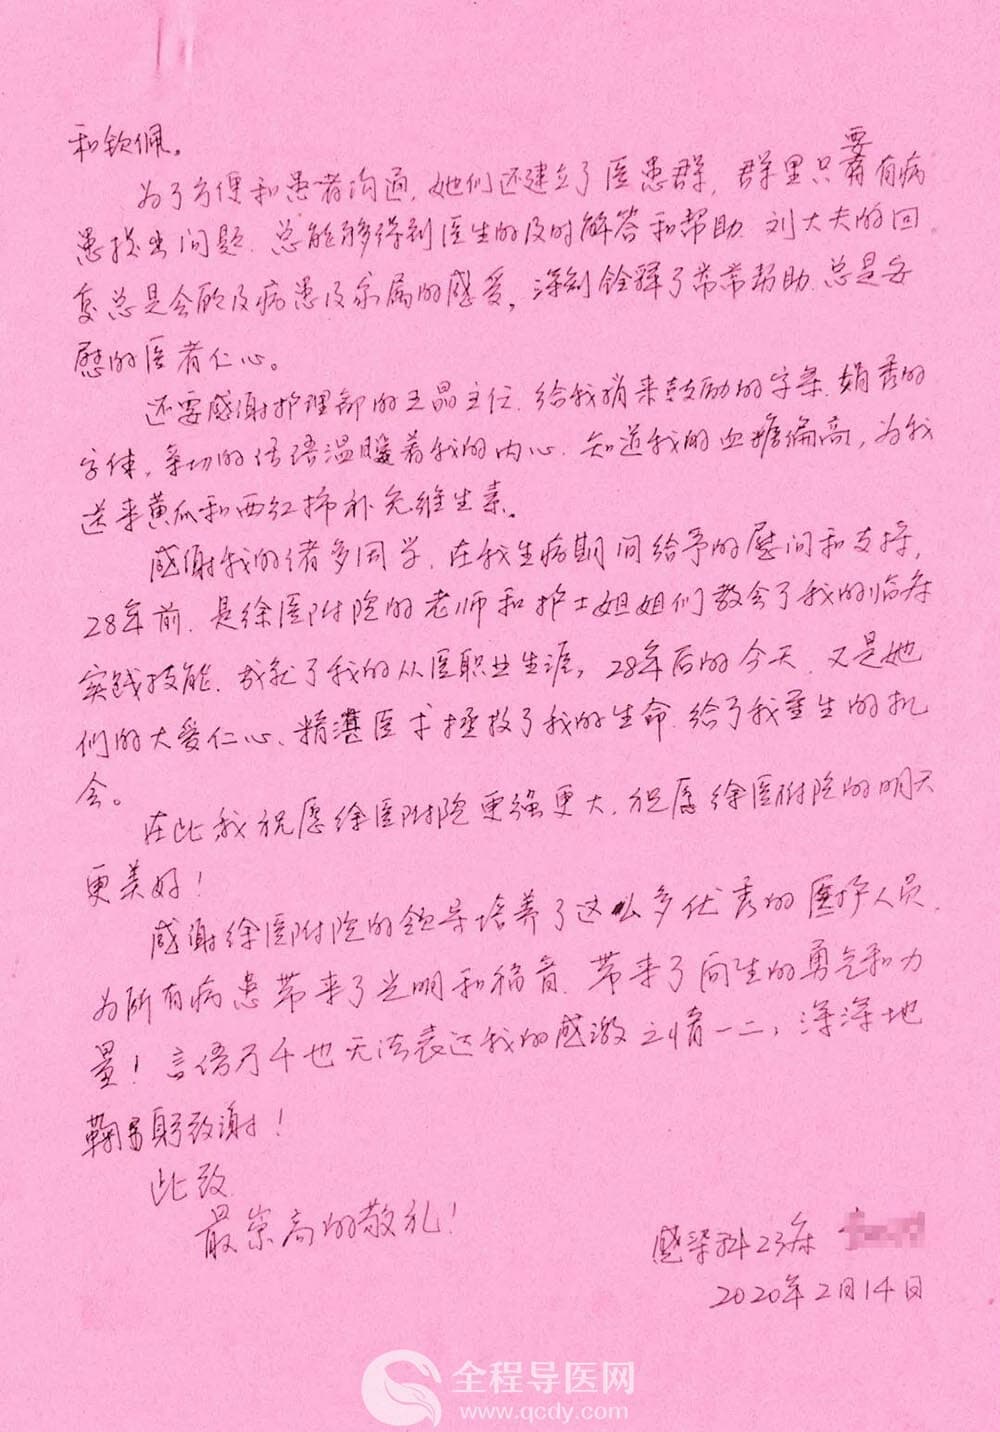 和钦佩。
为了方便和患者沟通,她们还建立了医患群,群里只要有病
患提出问题.总能够得到医生的及时解答和帮助.刘大夫的回
复总是会顾及病患及家属的感受,深刻诠释了常常帮助.总是安
慰的医者仁心。
还要感谢护理部的王晶主任.给我捎来鼓励的字条.娟秀的
字体,亲切的话语温暖着我的内心.知道我的血糖偏高,为我
送来黄瓜和西红柿补充维生素。
感谢我的诸多同学.在我生病期间给予的慰问和支持,
28年前.是徐医附院的老师和护士姐姐们教会了我的临床
实践技能.成就了我的从医职业生涯,28年后的今天.又是她
们的大爱仁心、精湛医术拯救了我的生命.给了我重生的机
会。
在此我祝愿徐医附院更强更大.祝愿徐医附院的明天
更美好!
感谢徐医附院的领导培养了这么多优秀的医护人员.
为所有病患带来了光明和福音.带来了向生的勇气和力
量!言语万千也无法表达我的感激之情一二,深深地
鞠躬致谢!
此致
最崇高的敬礼!
感染科23床
2020年2月14日
全程导医网
www.qcdy.com